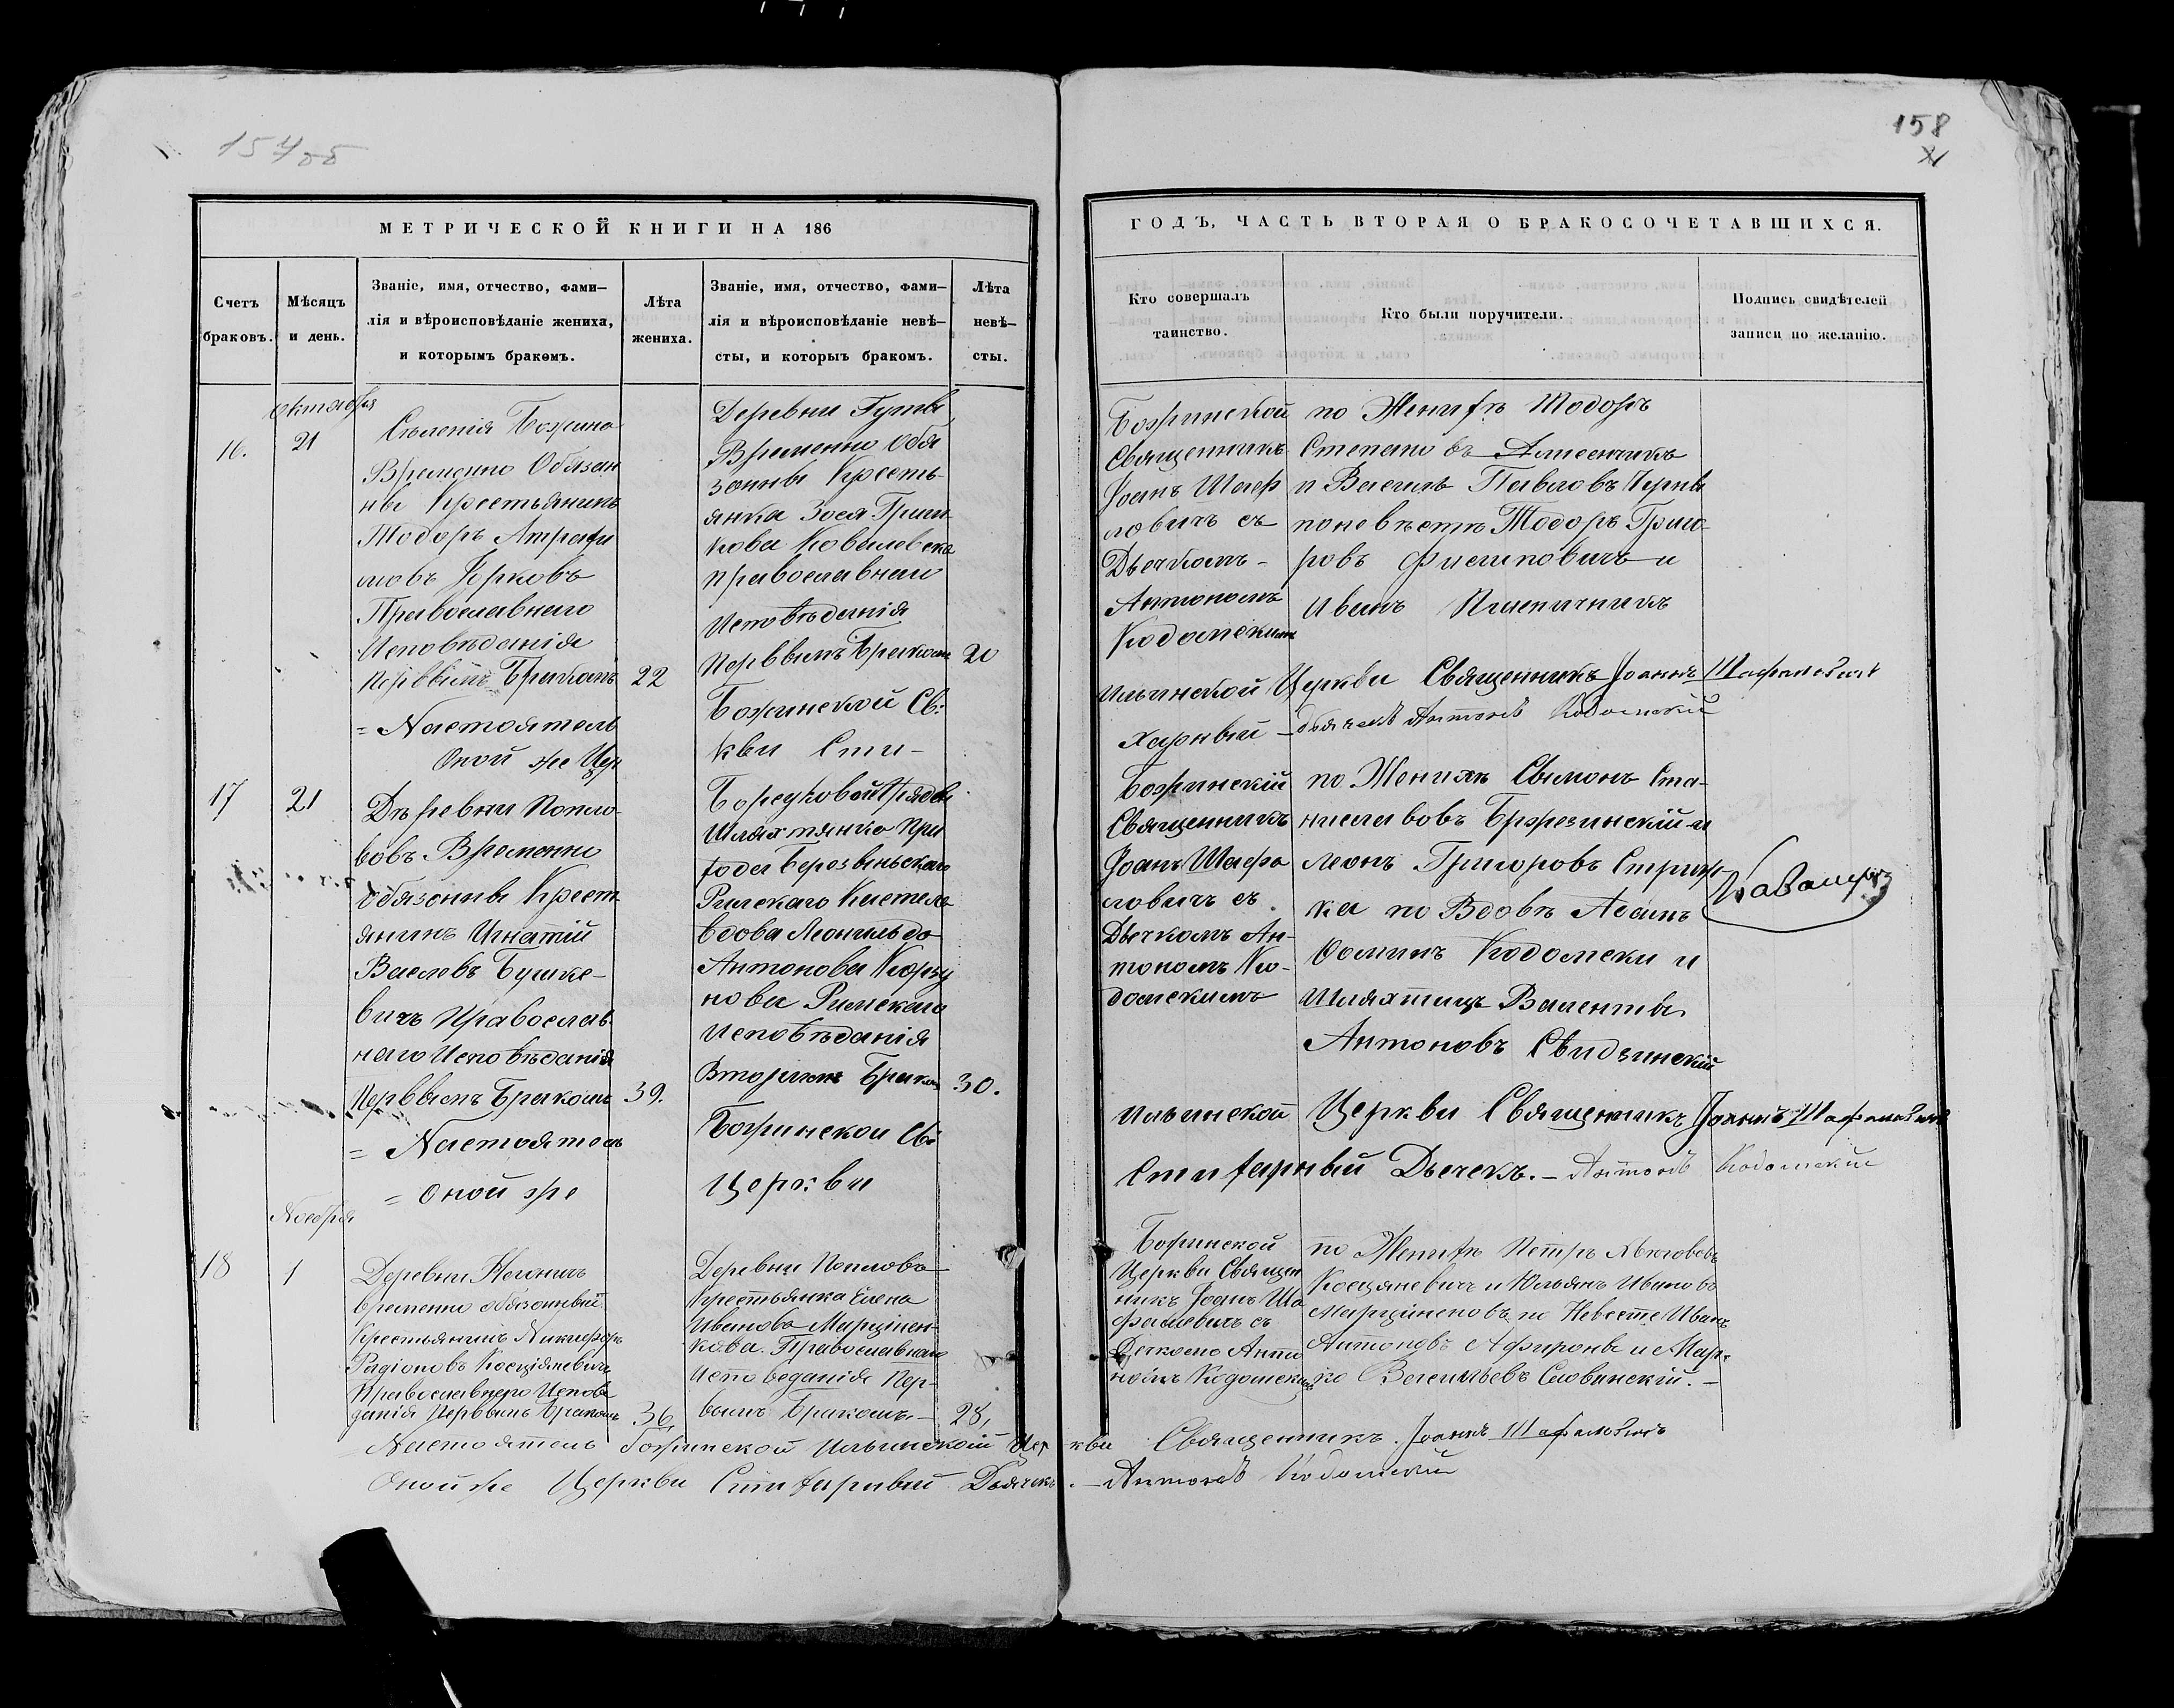 154об
158
МЕТРИЧЕСКОЙ КНИГИ НА 186
ГОДЪ, ЧАСТЬ ВТОРАЯ О БРАКОСОЧЕТАВШИХСЯ.
Счетъ
браковъ.
Мѣсяцъ
и день.
Званіе, имя, отчество, фами—
лія и вѣроисповѣданіе жениха,
и которымъ бракомъ.
Лѣта
жениха.
Званіе, имя, отчество, фами—
лія и вѣроисповѣданіе невѣ—
сты, и которыъ бракомъ.
Лѣта
невѣ—
сты.
Кто совершалъ
таинство.
Кто были поручители.
Подпись свидѣтелей
записи по желанію.
16.
Октября
21
Сѣленія Божина
Временно Обязан
ны Крестьянинъ
Тодоръ
Юрковъ
Православнаго
Исповѣданія
Первымъ Бракомъ
22
Деревни Гуты
Временно Обя
зонны Кресть-
янка Зося Григо
Ковалевска
православнаго
Исповѣданія
Первымъ Бракомъ
20
Божинской
Священникъ
Іоанъ Шаф
ловичъ съ
Дьечкомъ -
Антономъ
Кодомскимъ
по Женихѣ Тодоръ
Степано въ
и Василь Павловъ
поневѣстѣ Тодоръ Григо-
ровъ Филиповичъ и
Иванъ Пшеничникъ
= Настоятель Божинской Св: Ильинской Церкви Священникъ Іоаннъ Шафаловичъ
Оной же Цер кви Сти- харный - дьячекъ Антонъ Кодомскій
17
21
Дѣревни Попло-
вовъ Временно
обязонны Крест
янинъ Игнатій
Васлевъ Бушке-
вичъ Православ
наго Исповѣданія
Первымъ Бракомъ
39.
Шляхтянка При
хода Березвиньскаго
Римскаго Кастела
вдова Леонильда
Антонова
нова Римскаго
Исповѣданія
Вторимъ Бракомъ
30.
Божинскій
Священникъ
Іоанъ Шафа
ловичъ съ
Дьечкомъ Ан-
тономъ Ко-
домскимъ
по Женихѣ Сымонъ Ста-
ниславовъ Бжезинскій и
Леонъ Григоровъ
ка по Вдовѣ Асапъ
Фоминъ Кодомски и
Шляхтицъ Валенты
Антоновъ Свидзинскій
= Настоятель Божинской Св: Ильинской Церкви Священникъ Іоаннъ Шафаловичъ
= Оной же Церкви Стихарный Дьечекъ. - Антонъ Кодомскій
18
Ноября
1
Деревни
временно обязонный
Крестьянинъ Никифоръ
Радіоновъ Косцяневичъ
Православнего Испове
данія Первымъ Бракомъ
36
Деревни Попловъ
Крестьянка Елена
Иванова Марцінен-
кова. Православнаго
Исповеданія Пер-
вымъ Бракомъ. -
28,
Божинской
Церкви Священ
никъ Іоанъ Ша
фалевичъ съ
Дечкомъ Анто
номъ Кодомскимъ
по Женихѣ Петръ
Косцяневичъ и Юльянъ Ивановъ
Марціненовъ по Невестѣ Иванъ
Антоновъ и Мар-
ко Васильевъ Словинскій. -
Настоятель Божинской Ильинской Церкви Священникъ. Іоаннъ Шафаловичъ
Оной же Церкви Стихарный Дьячекъ. - Антонъ Кодомскій